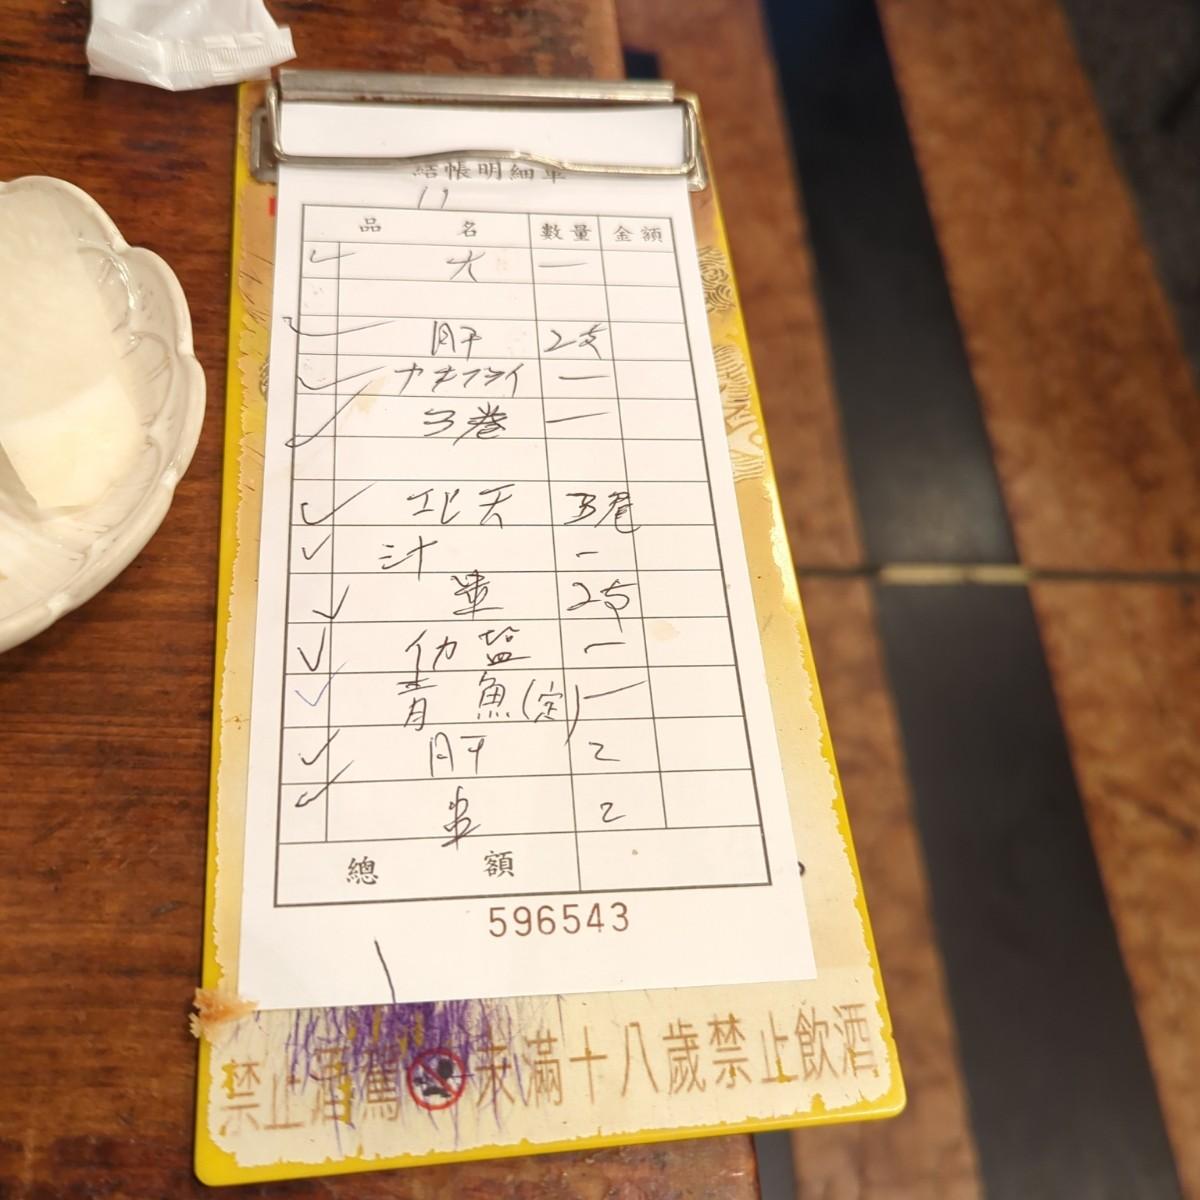 結帳明細單
11
品名 數量 金額
大 一
肝 2支
カキフライ 一
3巻 一
エビ天 3尾
汁 一
2支
塩 一
青魚(定) 一
肝 2
串 2
總額
596543
禁止酒駕 未滿十八歲禁止飲酒